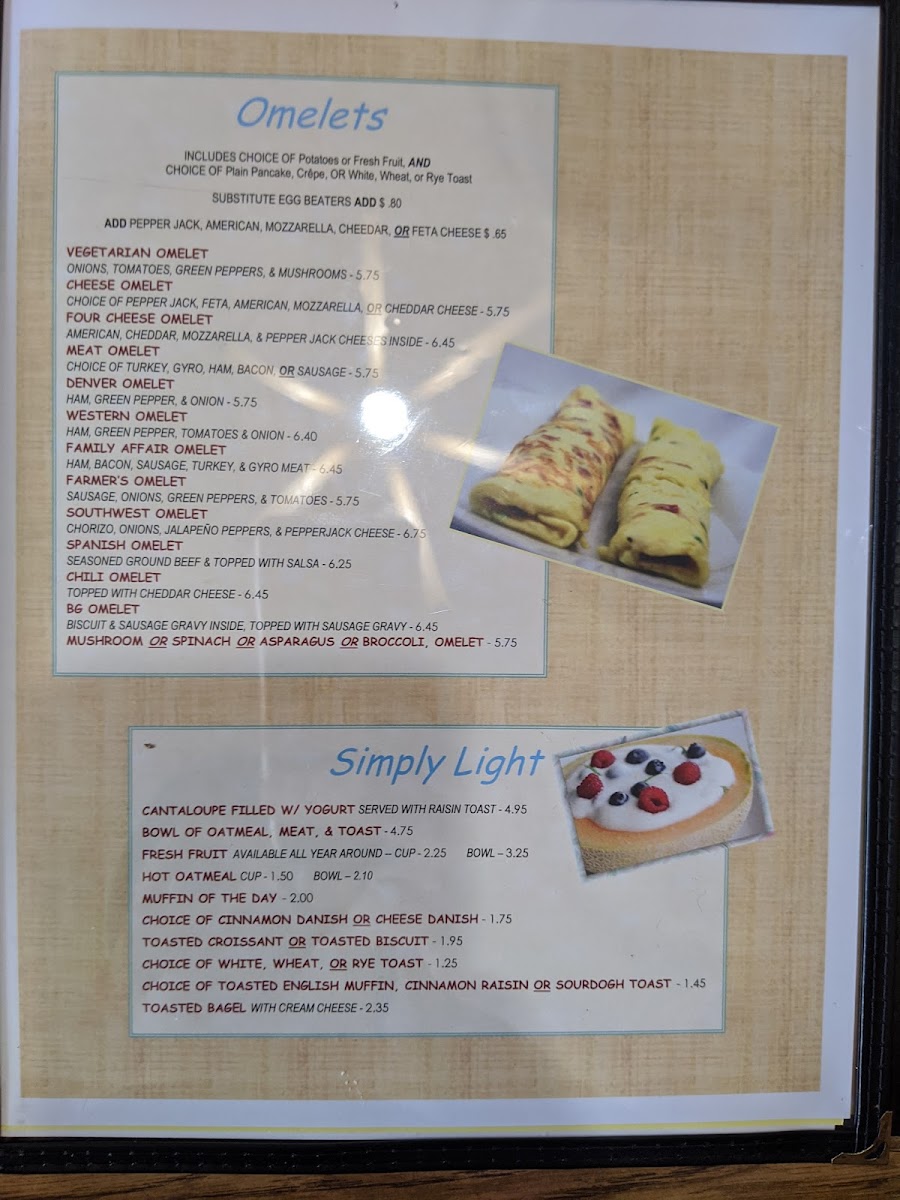 Omelets
INCLUDES CHOICE OF Potatoes or Fresh Fruit, AND
CHOICE OF Plain Pancake, Crêpe, OR White, Wheat, or Rye Toast
SUBSTITUTE EGG BEATERS ADD $ .80
ADD PEPPER JACK, AMERICAN, MOZZARELLA, CHEEDAR, OR FETA CHEESE $ .65
VEGETARIAN OMELET
ONIONS, TOMATOES, GREEN PEPPERS, & MUSHROOMS - 5.75
CHEESE OMELET
CHOICE OF PEPPER JACK, FETA, AMERICAN, MOZZARELLA, OR CHEDDAR CHEESE - 5.75
FOUR CHEESE OMELET
AMERICAN, CHEDDAR, MOZZARELLA, & PEPPER JACK CHEESES INSIDE - 6.45
MEAT OMELET
CHOICE OF TURKEY, GYRO, HAM, BACON, OR SAUSAGE - 5.75
DENVER OMELET
HAM, GREEN PEPPER, & ONION - 5.75
WESTERN OMELET
HAM, GREEN PEPPER, TOMATOES & ONION - 6.40
FAMILY AFFAIR OMELET
HAM, BACON, SAUSAGE, TURKEY, & GYRO MEAT - 6.45
FARMER'S OMELET
SAUSAGE, ONIONS, GREEN PEPPERS, & TOMATOES - 5.75
SOUTHWEST OMELET
CHORIZO, ONIONS, JALAPEÑO PEPPERS, & PEPPERJACK CHEESE - 6.75
SPANISH OMELET
SEASONED GROUND BEEF & TOPPED WITH SALSA - 6.25
CHILI OMELET
TOPPED WITH CHEDDAR CHEESE - 6.45
BG OMELET
BISCUIT & SAUSAGE GRAVY INSIDE, TOPPED WITH SAUSAGE GRAVY - 6.45
MUSHROOM OR SPINACH OR ASPARAGUS OR BROCCOLI, OMELET - 5.75
Simply Light
CANTALOUPE FILLED W/ YOGURT SERVED WITH RAISIN TOAST - 4.95
BOWL OF OATMEAL, MEAT, & TOAST - 4.75
FRESH FRUIT AVAILABLE ALL YEAR AROUND – CUP - 2.25 BOWL – 3.25
HOT OATMEAL CUP - 1.50 BOWL – 2.10
MUFFIN OF THE DAY - 2.00
CHOICE OF CINNAMON DANISH OR CHEESE DANISH - 1.75
TOASTED CROISSANT OR TOASTED BISCUIT - 1.95
CHOICE OF WHITE, WHEAT, OR RYE TOAST - 1.25
CHOICE OF TOASTED ENGLISH MUFFIN, CINNAMON RAISIN OR SOURDOGH TOAST - 1.45
TOASTED BAGEL WITH CREAM CHEESE - 2.35